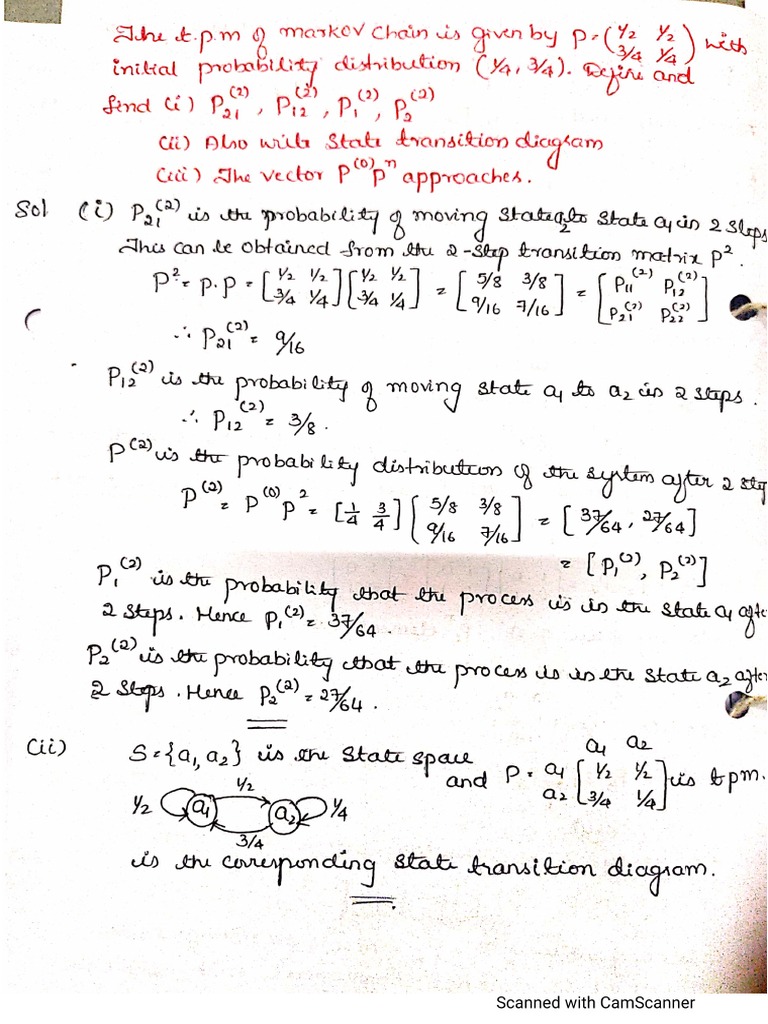 The t.p.m of markov chain is given by P = (1/2 1/2
3/4 1/4) with
initial probability distribution (1/4, 3/4). Define and
find (i) P₂₁⁽²⁾, P₁₂⁽²⁾, P₁⁽²⁾, P₂⁽²⁾
(ii) Also write state transition diagram
(iii) The vector P⁽⁰⁾Pⁿ approaches.
Sol (i) P₂₁⁽²⁾ is the probability of moving state a₂ to state a₁ in 2 steps
This can be obtained from the 2-step transition matrix P².
P² = P.P = [1/2 1/2
3/4 1/4] [1/2 1/2
3/4 1/4] = [5/8 3/8
9/16 7/16] = [P₁₁⁽²⁾ P₁₂⁽²⁾
P₂₁⁽²⁾ P₂₂⁽²⁾]
∴ P₂₁⁽²⁾ = 9/16
P₁₂⁽²⁾ is the probability of moving state a₁ to a₂ in 2 steps.
∴ P₁₂⁽²⁾ = 3/8.
P⁽²⁾ is the probability distribution of the system after 2 step
P⁽²⁾ = P⁽⁰⁾P² = [1/4 3/4] [5/8 3/8
9/16 7/16] = [37/64, 27/64]
= [P₁⁽²⁾, P₂⁽²⁾]
P₁⁽²⁾ is the probability that the process is in the state a₁ afte
2 steps. Hence P₁⁽²⁾ = 37/64.
P₂⁽²⁾ is the probability that the process is in the state a₂ afte
2 steps. Hence P₂⁽²⁾ = 27/64.
(ii) S = {a₁, a₂} is the state space
a₁ a₂
and P = a₁ [1/2 1/2
a₂ 3/4 1/4] is t.p.m.
1/2
1/2 a₁ a₂ 1/4
3/4
is the corresponding state transition diagram.
Scanned with CamScanner